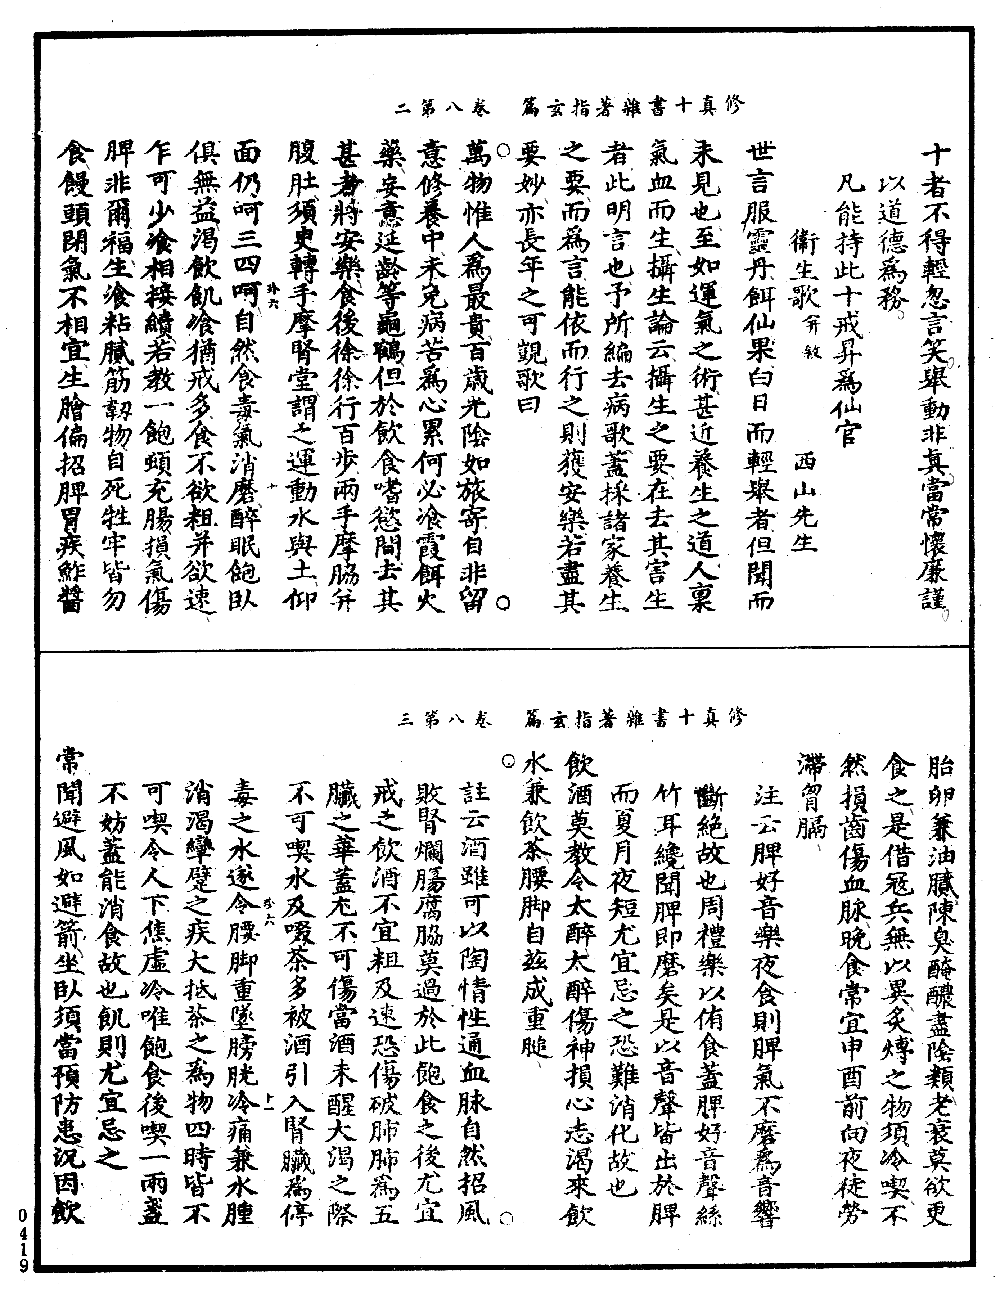 修真十書雜著指玄篇　卷八第二
十者不得輕忽言笑舉動非真當常懷廉謹
以道德爲務
凡能持此十戒昇爲仙官
衛生歌并敘　西山先生
世言服靈丹餌仙果白日而輕舉者但聞而
未見也至如運氣之術甚近養生之道人稟
氣血而生攝生論云攝生之要在去其害生
者此明言也予所編去病歌蓋採諸家養生
之要而爲言能依而行之則獲安樂若盡其
要妙亦長年之可覬歌曰
萬物惟人爲最貴百歲光陰如旅寄自非留
意修養中未免病苦爲心累何必飡霞餌火
藥妄意延齡等龜鶴但於飲食嗜慾間去其
甚者將安樂食後徐徐行百步兩手摩脇并
腹肚須臾轉手摩腎堂謂之運動水與土仰
珎六　十
面仍呵三四呵自然食毒氣消磨醉眠飽臥
俱無益渴飲飢飡猶戒多食不欲粗并欲速
乍可少飡相接續若教一飽頓充腸損氣傷
脾非爾福生飡粘膩筋韌物自死牲牢皆勿
食饅頭閉氣不相宜生膾偏招脾胃疾鮓醬
修真十書雜著指玄篇　卷八第三
胎卵兼油膩陳臭醃醲盡陰類老衰莫欲更
食之是借冦兵無以異炙煿之物須冷喫不
然損齒傷血脉晚食常宜申酉前向夜徒勞
滯胷膈
注云脾好音樂夜食則脾氣不磨爲音響
斷絕故也周禮樂以侑食蓋脾好音聲絲
竹耳纔聞脾即磨矣是以音聲皆出於脾
而夏月夜短尤宜忌之恐難消化故也
飲酒莫教令太醉太醉傷神損心志渴來飲
水兼飲茶腰脚自茲成重腿
註云酒雖可以陶情性通血脉自然招風
敗腎爛腸腐脇莫過於此飽食之後尤宜
戒之飲酒不宜粗及速恐傷破肺肺爲五
臟之華蓋尤不可傷當酒未醒大渴之際
不可喫水及啜茶多被酒引入腎臟爲停
珎六　十一
毒之水遂令腰脚重墜膀胱冷痛兼水腫
消渴攣躄之疾大抵茶之爲物四時皆不
可喫令人下焦虛冷唯飽食後喫一兩盞
不妨蓋能消食故也飢則尤宜忌之
常聞避風如避箭坐臥須當預防患況因飲
0419